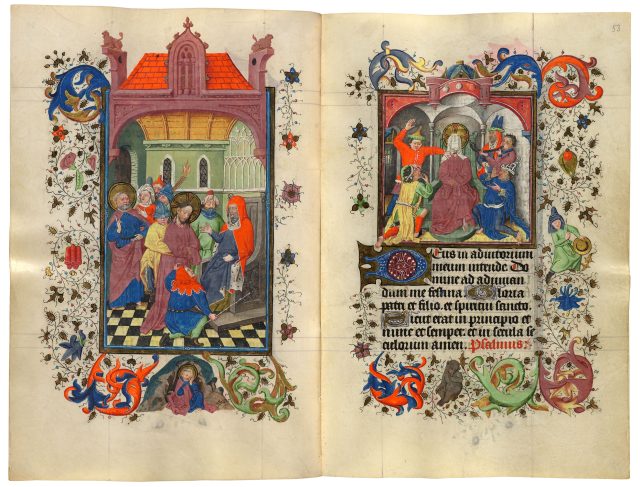 53
Deus in adiutorium
meum intende Do
mine ad adiuuan
dum me festina Gloria
patri et filio et spiritui sancto.
Sicut erat in principio et
nunc et semper et in secula se
culorum amen. Psalmus.